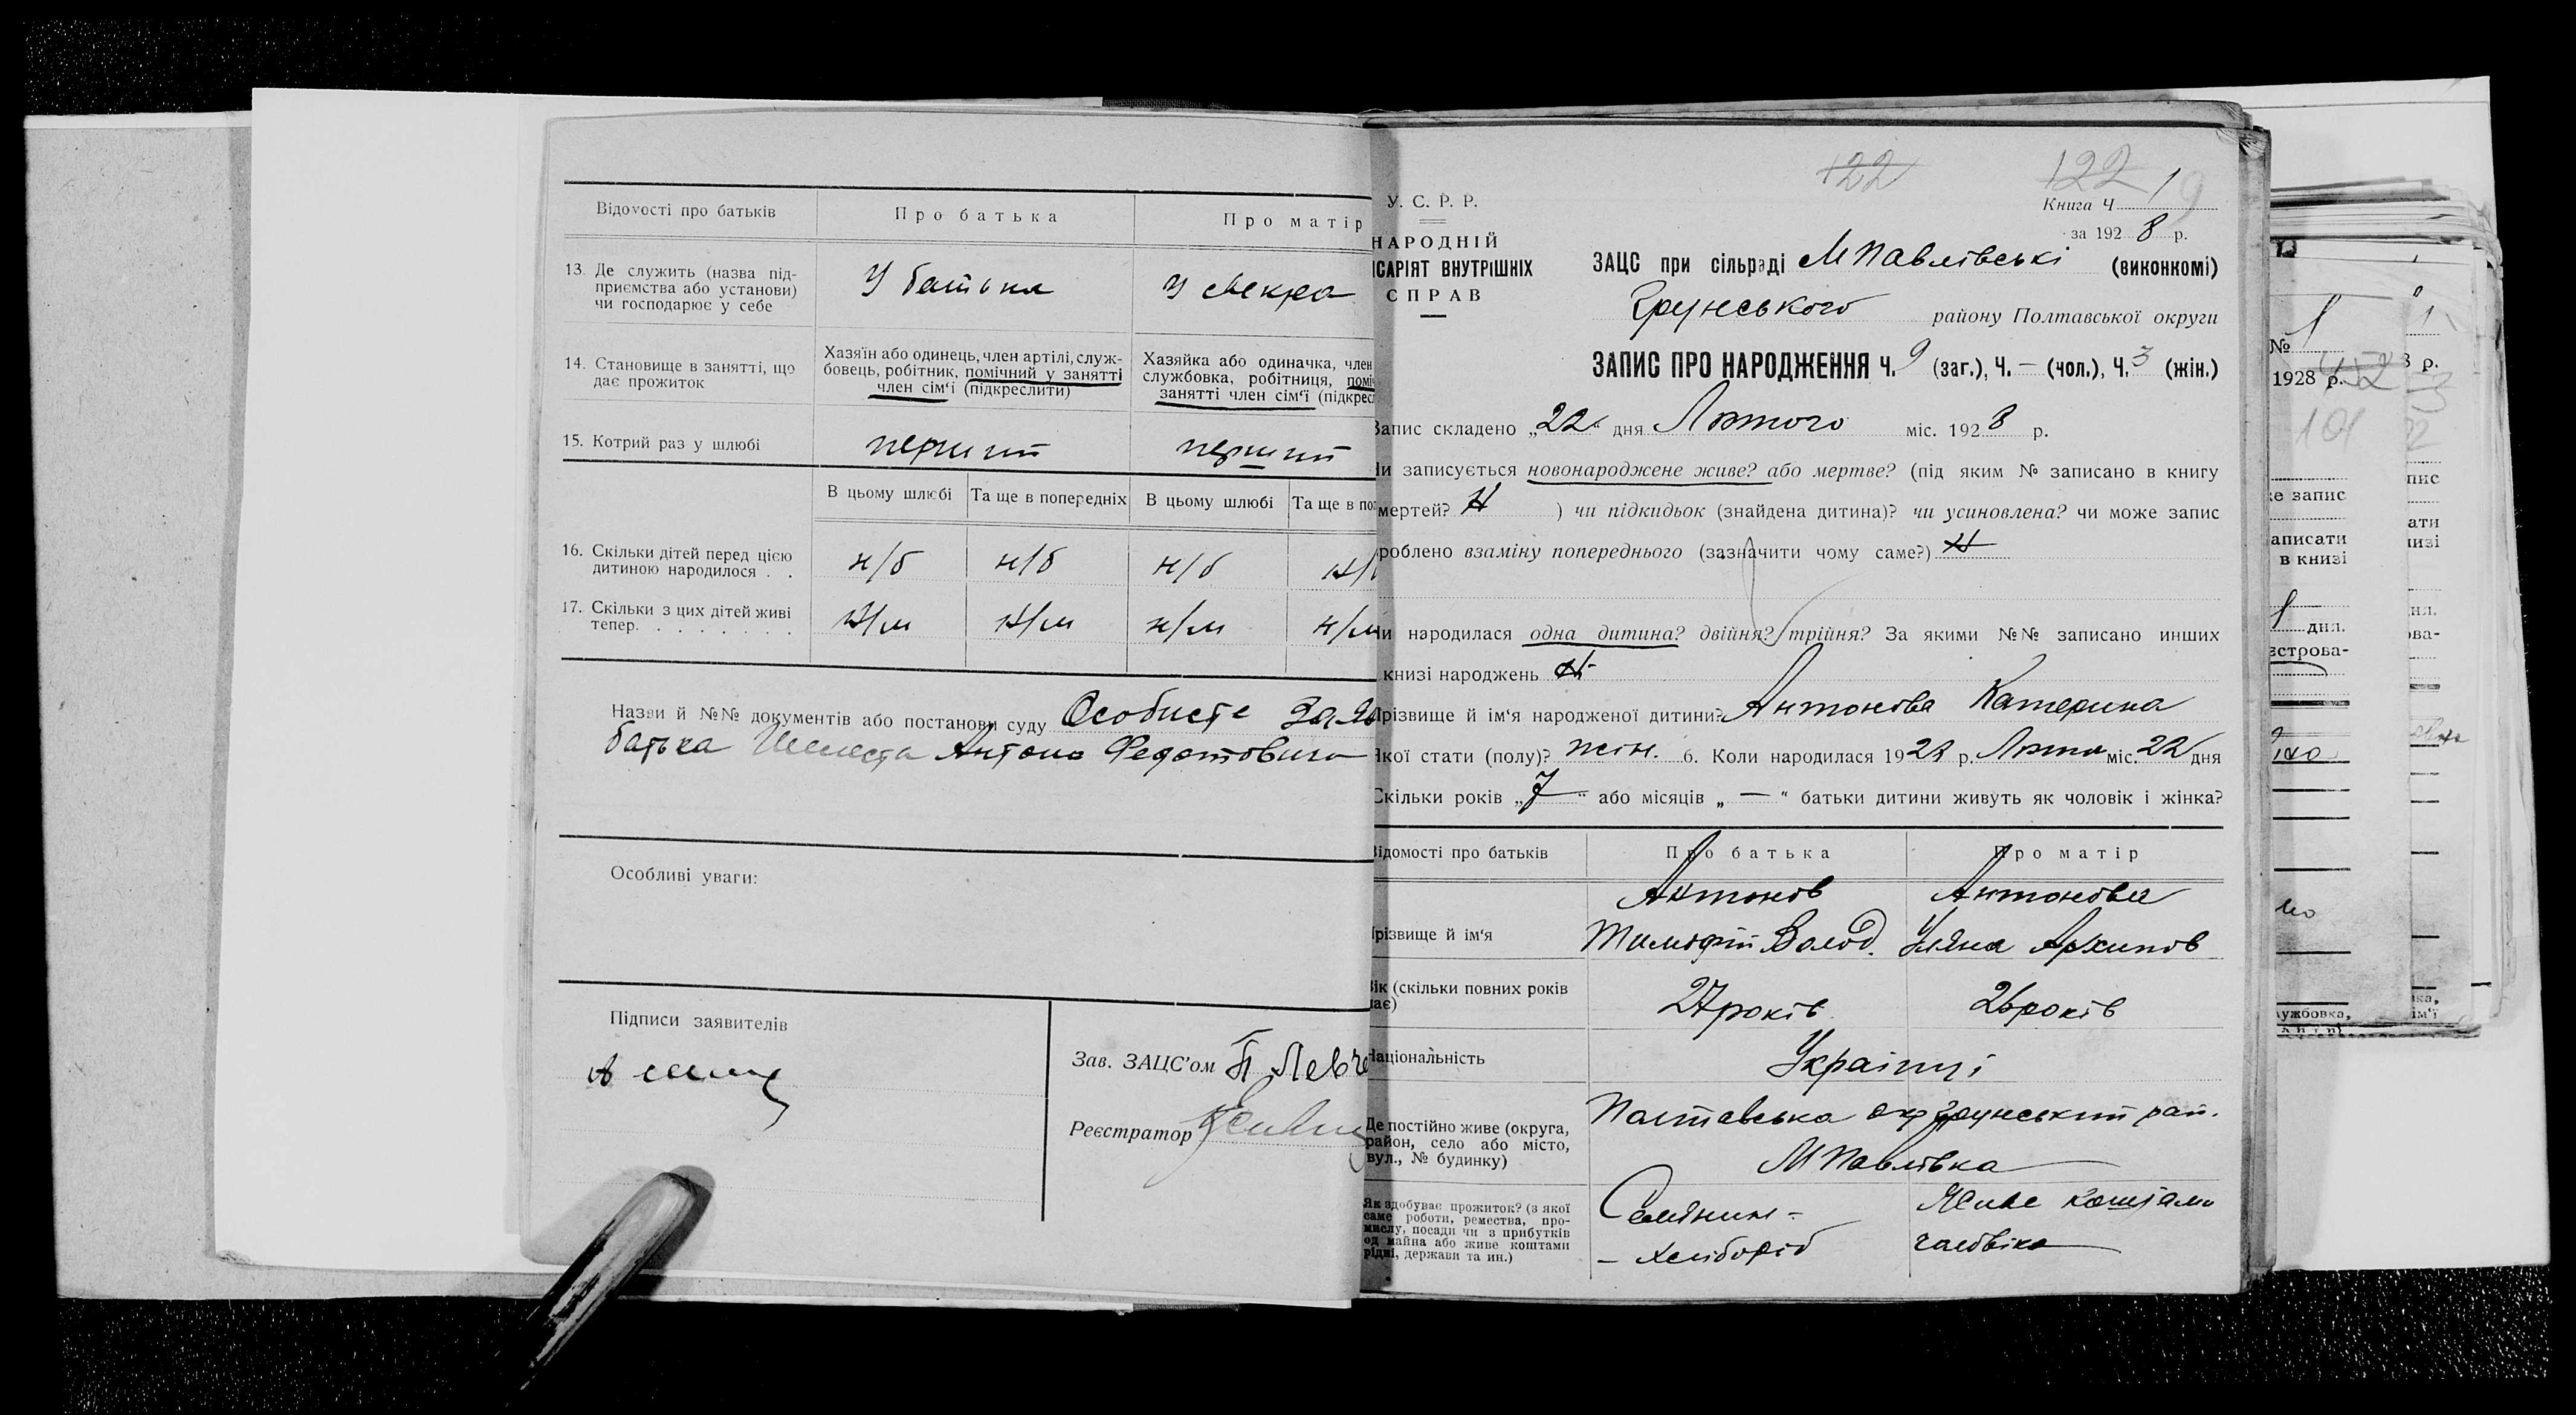 Відомості про батьків
Про батька
Про матір
13. Де служить (назва під-
приємства або установи)
чи господарює у себе
У батька
У свекра
14. Становище в занятті, що
дає прожиток
Хазяїн або одинець, член артілі, служ-
бовець, робітник, помічний у занятті
член сім'ї (підкреслити)
Хазяйка або одиначка, член
службовка, робітниця, помі
занятті член сім'ї (підкрес
15. Котрий раз у шлюбі
перший
перший
В цьому шлюбі Та ще в попередніх В цьому шлюбі Та ще в по
16. Скільки дітей перед цією
дитиною народилося . .
н/б н/б н/б н/
17. Скільки з цих дітей живі
тепер. . . . . . . .
н/м н/м н/м н/м
Назви й №№ документів або постанови суду Особисте Зая
батька Шелеста Антона Федотовича
Особливі уваги:
Підписи заявителів
А
Зав. ЗАЦС'ом П Левче
Реєстратор
122
122
У. С. Р. Р.
Книга Ч 1 9
за 1928 р.
НАРОДНІЙ
ІСАРІЯТ ВНУТРІШНІХ
СПРАВ
ЗАЦС при сільраді МПавлівські (виконкомі)
Грунського району Полтавської округи
ЗАПИС ПРО НАРОДЖЕННЯ Ч. 9 (заг.), Ч. — (чол.), Ч. 3 (жін.)
Запис складено „22“ дня Лютого міс. 1928 р.
Чи записується новонароджене живе? або мертве? (під яким № записано в книгу
смертей? Н ) чи підкидьок (знайдена дитина)? чи усиновлена? чи може запис
зроблено взаміну попереднього (зазначити чому саме?) Н
Чи народилася одна дитина? двійня? трійня? За якими №№ записано инших
книзі народжень Н
Прізвище й ім'я народженої дитини? Антонова Катерина
Якої стати (полу)? жін. 6. Коли народилася 1928 р. Лютм міс. 22 дня
Скільки років „7“ або місяців „—“ батьки дитини живуть як чоловік і жінка?
Відомості про батьків
Про батька
Про матір
Прізвище й ім'я
Антонов
Тимофій Волод.
Антонова
Уляна Архипов
Вік (скільки повних років
має)
27 років
26 років
Національність
Українці
Де постійно живе (округа,
район, село або місто,
вул., № будинку)
Полтавська окр Грунський рай.
МПавлівка
Як здобуває прожиток? (з якої
саме роботи, ремества, про-
мислу, посади чи з прибутків
од майна або живе коштами
рідні, держави та ин.)
Селянин -
- хлібороб
Живе коштами
чоловіка
№ 1
1928 р.
152
101
е запис
аписати
в книзі
дня.
естрова-
ужбовка,